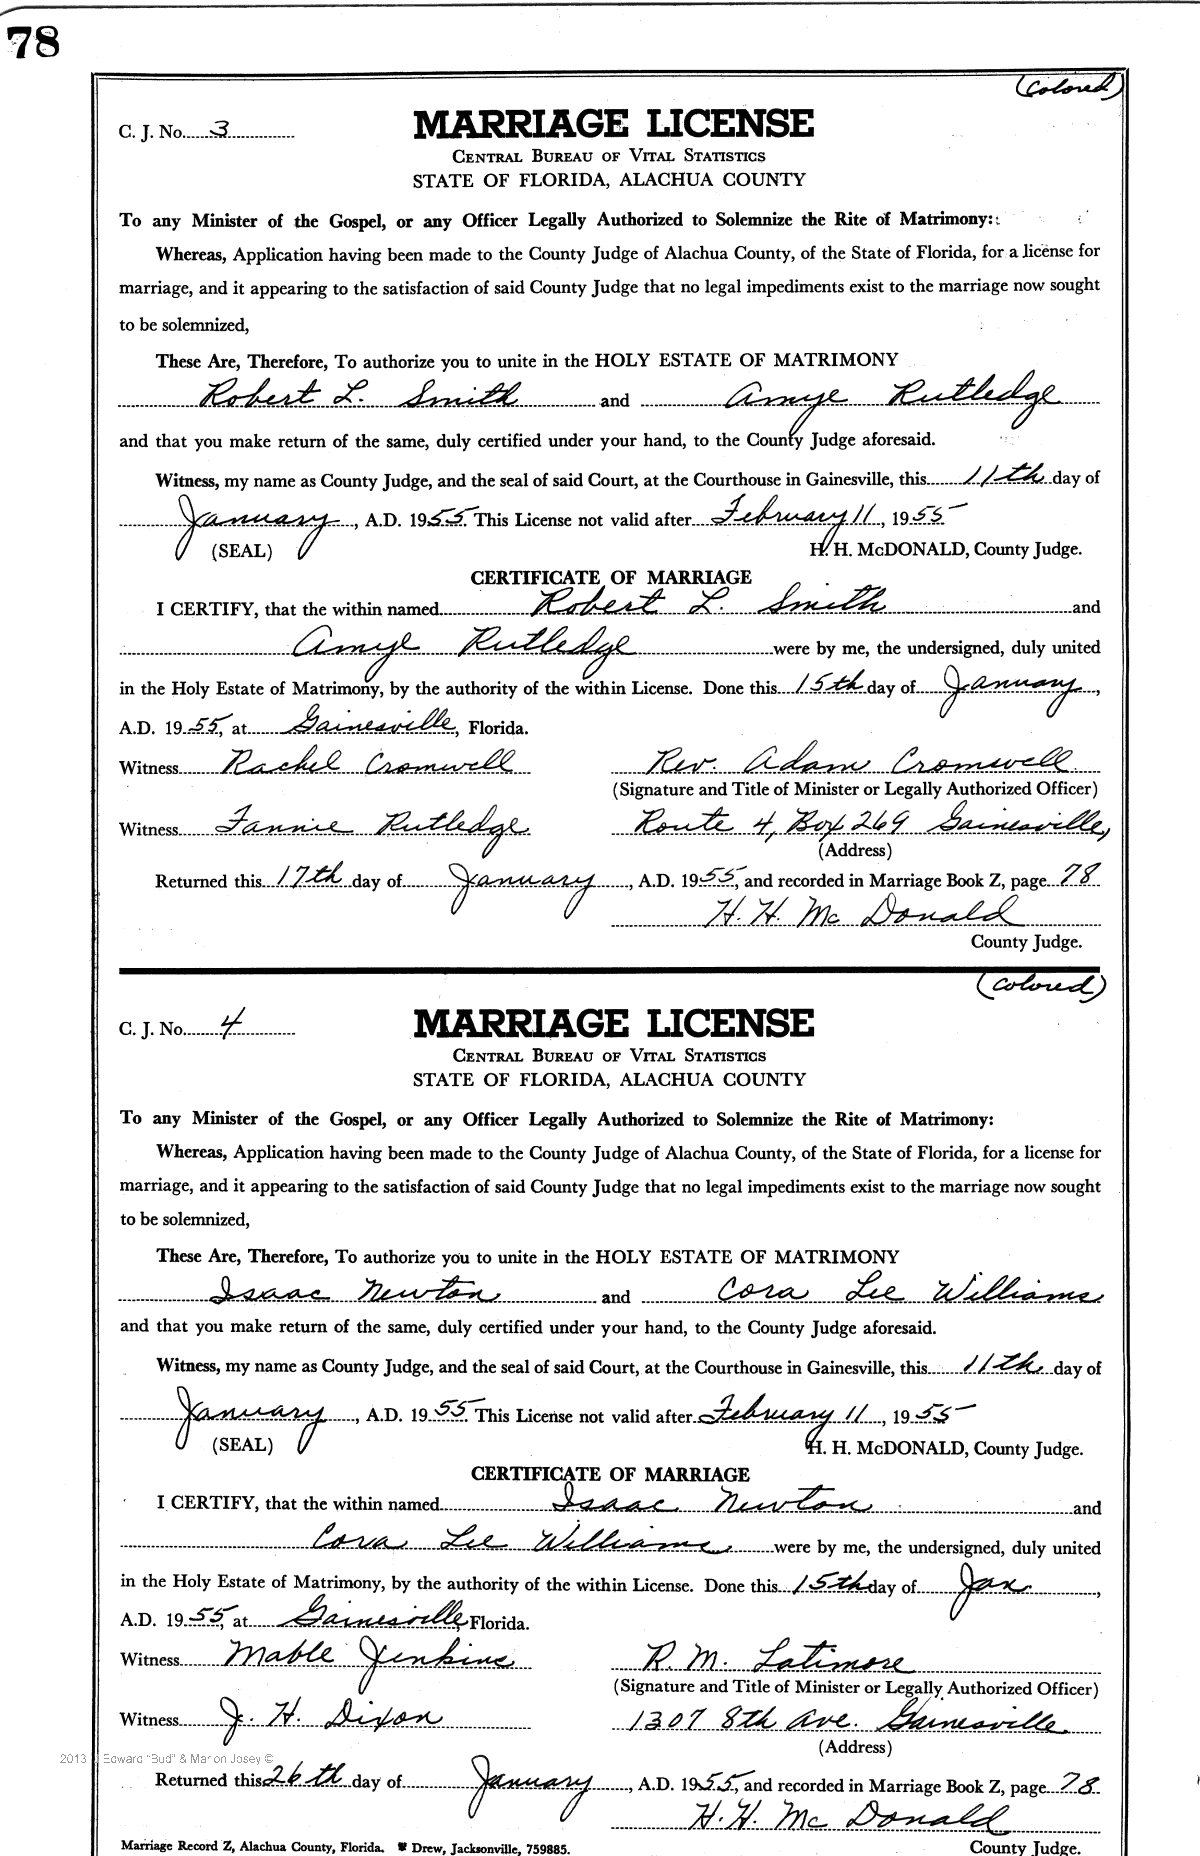 78
(Colored)
C. J. No. 3
MARRIAGE LICENSE
CENTRAL BUREAU OF VITAL STATISTICS
STATE OF FLORIDA, ALACHUA COUNTY
To any Minister of the Gospel, or any Officer Legally Authorized to Solemnize the Rite of Matrimony:
Whereas, Application having been made to the County Judge of Alachua County, of the State of Florida, for a license for
marriage, and it appearing to the satisfaction of said County Judge that no legal impediments exist to the marriage now sought
to be solemnized,
These Are, Therefore, To authorize you to unite in the HOLY ESTATE OF MATRIMONY
Robert L. Smith and Amye Rutledge
and that you make return of the same, duly certified under your hand, to the County Judge aforesaid.
Witness, my name as County Judge, and the seal of said Court, at the Courthouse in Gainesville, this 11th day of
January, A.D. 1955. This License not valid after February 11, 1955
(SEAL) H. H. McDONALD, County Judge.
CERTIFICATE OF MARRIAGE
I CERTIFY, that the within named Robert L. Smith and
Amye Rutledge were by me, the undersigned, duly united
in the Holy Estate of Matrimony, by the authority of the within License. Done this 15th day of January,
A.D. 1955, at Gainesville, Florida.
Witness Rachel Cromwell Rev. Adam Cromwell
(Signature and Title of Minister or Legally Authorized Officer)
Witness Fannie Rutledge Route 4, Box 269 Gainesville,
(Address)
Returned this 17th day of January, A.D. 1955, and recorded in Marriage Book Z, page 78
H. H. McDonald
County Judge.
(Colored)
C. J. No. 4
MARRIAGE LICENSE
CENTRAL BUREAU OF VITAL STATISTICS
STATE OF FLORIDA, ALACHUA COUNTY
To any Minister of the Gospel, or any Officer Legally Authorized to Solemnize the Rite of Matrimony:
Whereas, Application having been made to the County Judge of Alachua County, of the State of Florida, for a license for
marriage, and it appearing to the satisfaction of said County Judge that no legal impediments exist to the marriage now sought
to be solemnized,
These Are, Therefore, To authorize you to unite in the HOLY ESTATE OF MATRIMONY
Isaac Newton and Cora Lee Williams
and that you make return of the same, duly certified under your hand, to the County Judge aforesaid.
Witness, my name as County Judge, and the seal of said Court, at the Courthouse in Gainesville, this 11th day of
January, A.D. 1955. This License not valid after February 11, 1955
(SEAL) H. H. McDONALD, County Judge.
CERTIFICATE OF MARRIAGE
I CERTIFY, that the within named Isaac Newton and
Cora Lee Williams were by me, the undersigned, duly united
in the Holy Estate of Matrimony, by the authority of the within License. Done this 15th day of Jan.,
A.D. 1955, at Gainesville, Florida.
Witness Mable Jenkins R. M. Latimore
(Signature and Title of Minister or Legally Authorized Officer)
Witness J. H. Dixon 1307 8th Ave. Gainesville
(Address)
2013 Edward "Bud" & Marion Josey ©
Returned this 26th day of January, A.D. 1955, and recorded in Marriage Book Z, page 78
H. H. McDonald
Marriage Record Z, Alachua County, Florida. Drew, Jacksonville, 759885. County Judge.